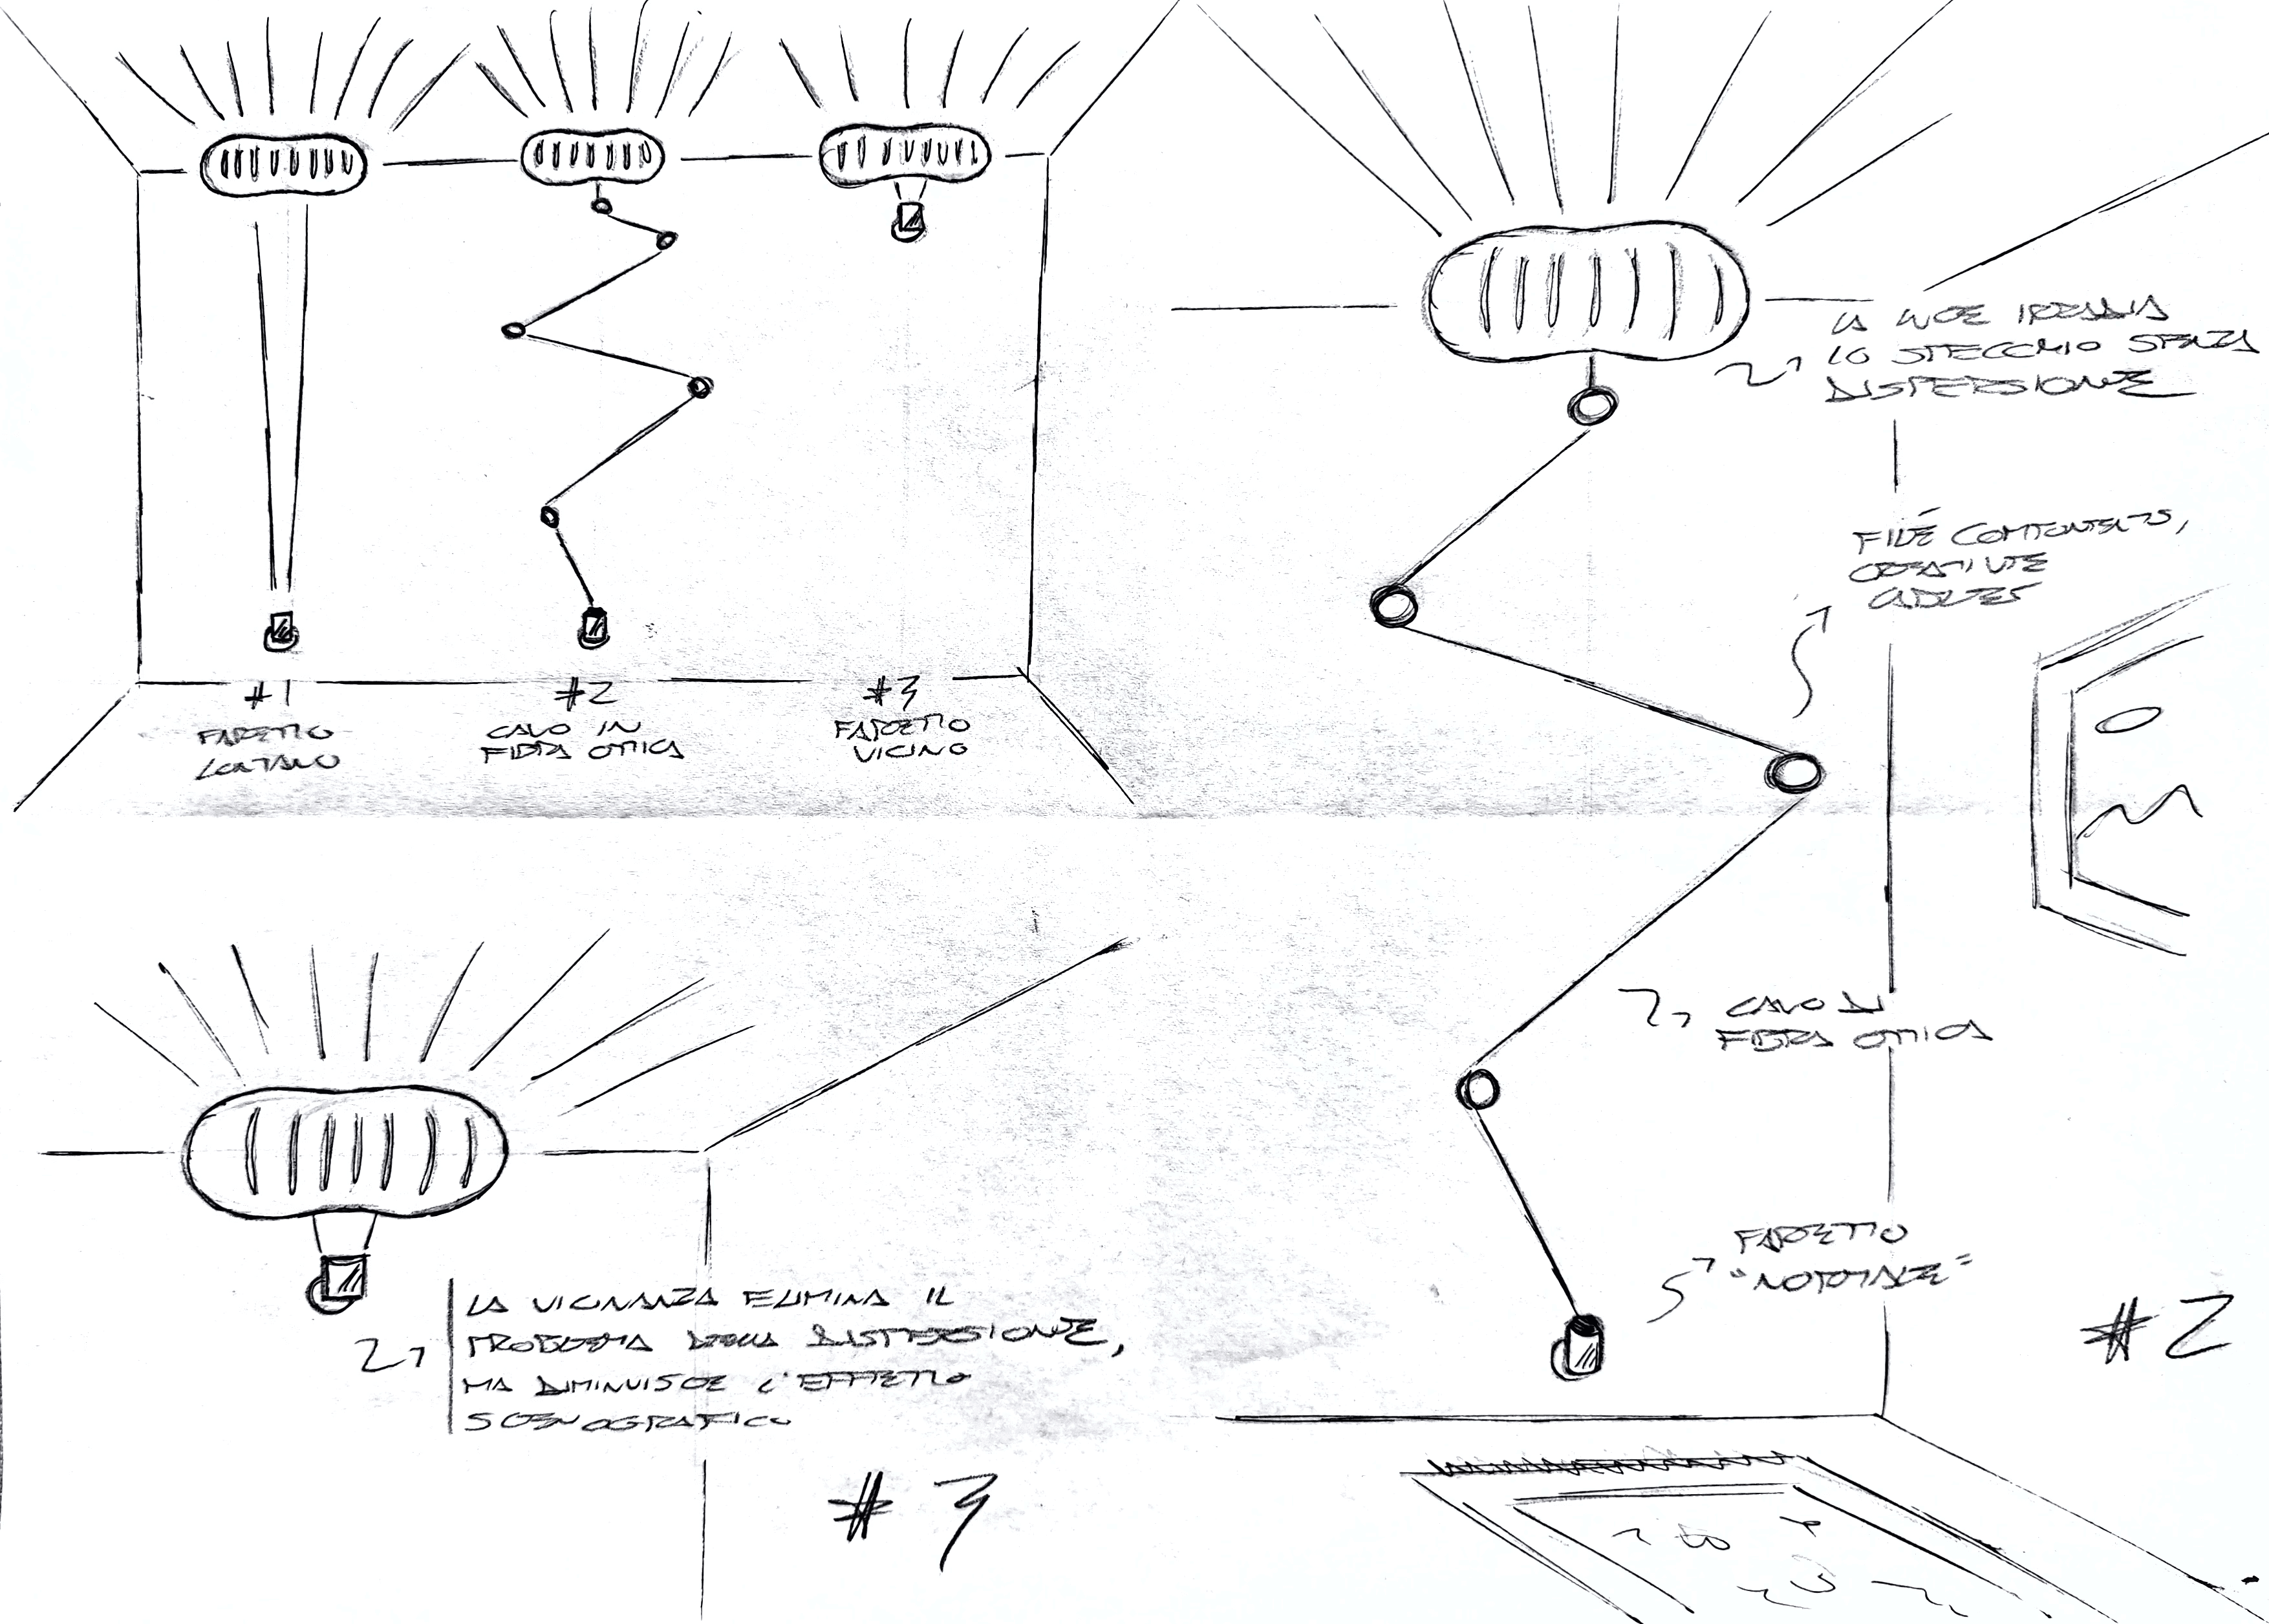 #1
FARETTO
LONTANO
#2
CAVO IN
FIBRA OTTICA
#3
FARETTO
VICINO
LA LUCE IRRADIA
LO SPECCHIO SENZA
DISPERSIONE
CAVO DI
FIBRA OTTICA
FARETTO
"NORMALE"
#2
LA VICINANZA ELIMINA IL
PROBLEMA DELLA DISPERSIONE,
MA DIMINUISCE L'EFFETTO
SCENOGRAFICO
#3